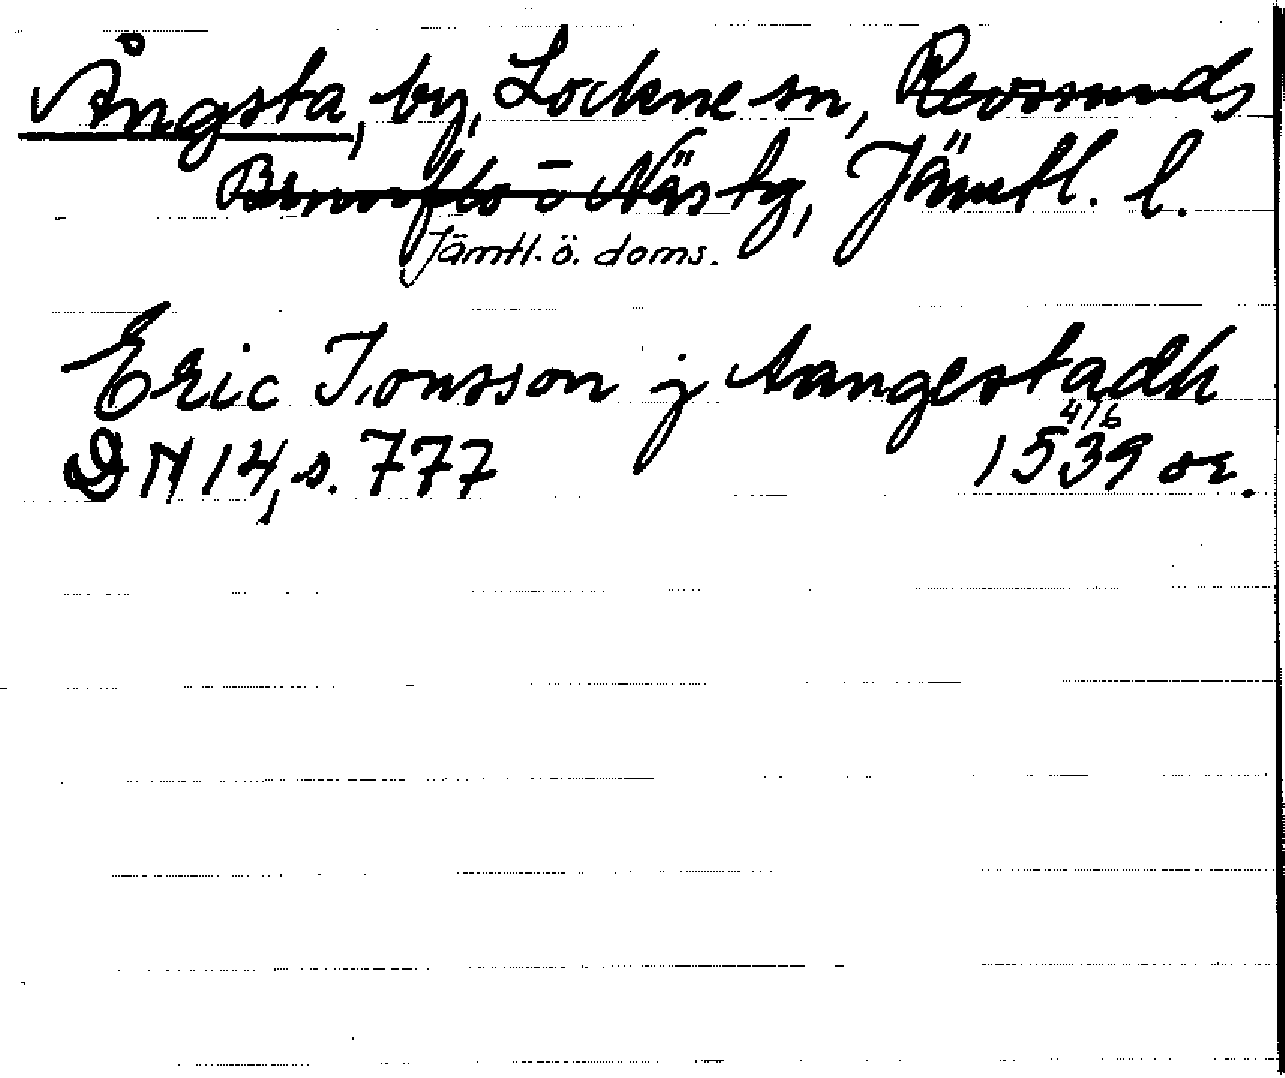 Ångsta, by, Lockne sn, Revsunds
Brunflo o Näs tg, Jämtl. l.
Jämtl. ö. doms.
Eric Jonsson j Aangestadh
4/6
DN 14, s. 777 1539 or.